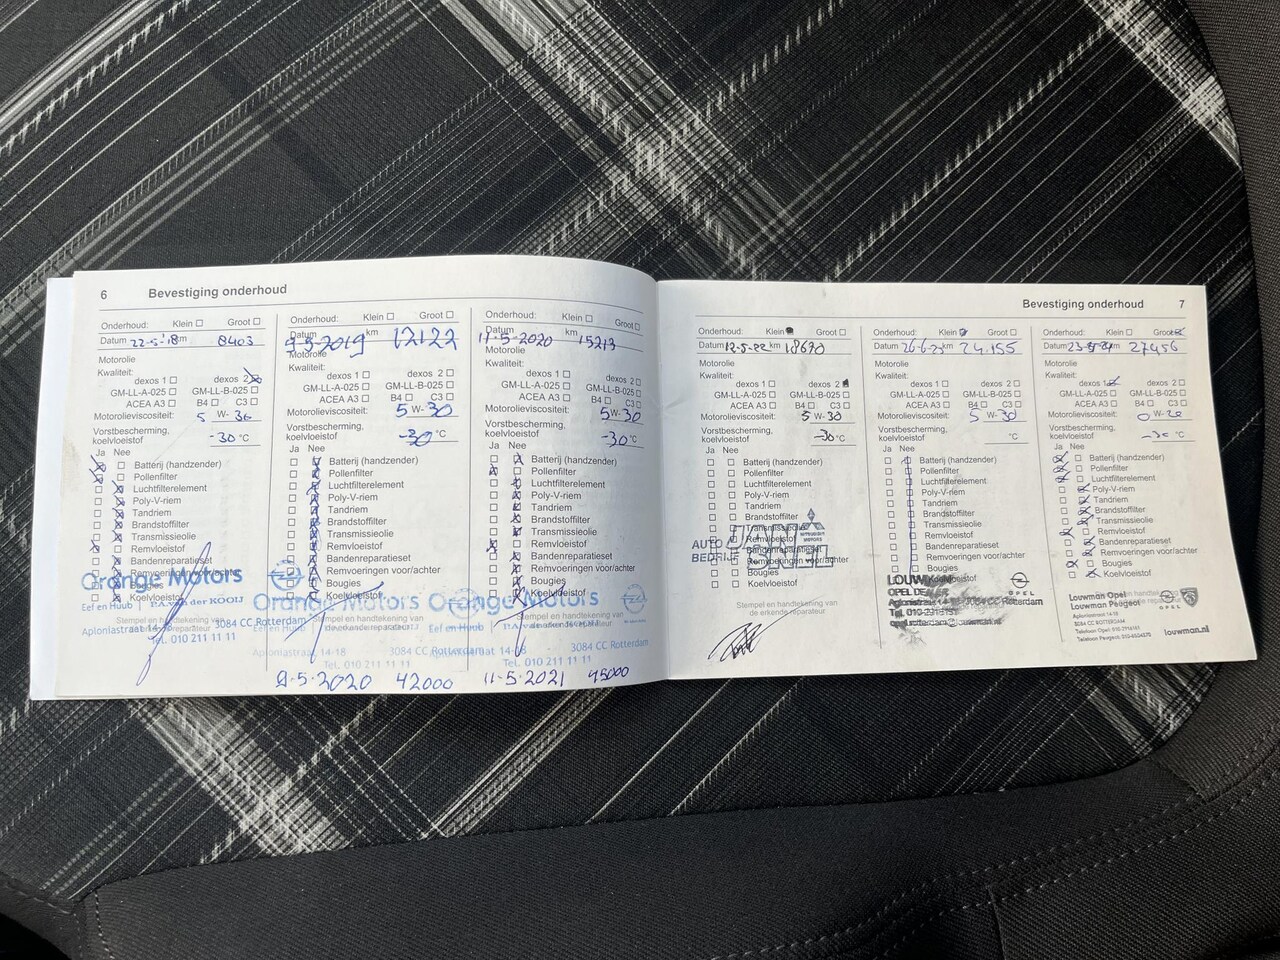 6 Bevestiging onderhoud
Onderhoud: Klein Groot
Datum 22-5-'18 km 8403
Motorolie
Kwaliteit:
dexos 1 dexos 2
GM-LL-A-025 GM-LL-B-025
ACEA A3 B4 C3
Motorolieviscositeit: 5 W- 30
Vorstbescherming,
koelvloeistof -30 °C
Ja Nee
Batterij (handzender)
Pollenfilter
Luchtfilterelement
Poly-V-riem
Tandriem
Brandstoffilter
Transmissieolie
Remvloeistof
Bandenreparatieset
Remvoeringen voor/achter
Bougies
Koelvloeistof
Orange Motors
Eef en Huub P.A. van der KOOIJ
Stempel en handtekening van
de erkende reparateur
Aplonlastraat 14-18 3084 CC Rotterdam
Tel. 010 211 11 11
Onderhoud: Klein Groot
Datum 9-5-2019 km 12122
Motorolie
Kwaliteit:
dexos 1 dexos 2
GM-LL-A-025 GM-LL-B-025
ACEA A3 B4 C3
Motorolieviscositeit: 5 W- 30
Vorstbescherming,
koelvloeistof -30 °C
Ja Nee
Batterij (handzender)
Pollenfilter
Luchtfilterelement
Poly-V-riem
Tandriem
Brandstoffilter
Transmissieolie
Remvloeistof
Bandenreparatieset
Remvoeringen voor/achter
Bougies
Koelvloeistof
Orange Motors
Stempel en handtekening van
de erkende reparateur
Aplonlastraat 14-18 3084 CC Rotterdam
Tel. 010 211 11 11
9-5-2020 42000
Onderhoud: Klein Groot
Datum 11-5-2020 km 15213
Motorolie
Kwaliteit:
dexos 1 dexos 2
GM-LL-A-025 GM-LL-B-025
ACEA A3 B4 C3
Motorolieviscositeit: 5 W- 30
Vorstbescherming,
koelvloeistof -30 °C
Ja Nee
Batterij (handzender)
Pollenfilter
Luchtfilterelement
Poly-V-riem
Tandriem
Brandstoffilter
Transmissieolie
Remvloeistof
Bandenreparatieset
Remvoeringen voor/achter
Bougies
Koelvloeistof
Orange Motors
Eef en Huub
Stempel en handtekening van
3084 CC Rotterdam
Tel. 010 211 11 11
11-5-2021 45000
Bevestiging onderhoud 7
Onderhoud: Klein Groot
Datum 12-5-22 km 18670
Motorolie
Kwaliteit:
dexos 1 dexos 2
GM-LL-A-025 GM-LL-B-025
ACEA A3 B4 C3
Motorolieviscositeit: 5 W- 30
Vorstbescherming,
koelvloeistof -30 °C
Ja Nee
Batterij (handzender)
Pollenfilter
Luchtfilterelement
Poly-V-riem
Tandriem
Brandstoffilter
Transmissieolie
Remvloeistof
Bandenreparatieset
Remvoeringen voor/achter
Bougies
Koelvloeistof
AUTO
BEDRIJF
MITSUBISHI
MOTORS
Stempel en handtekening van
de erkende reparateur
Onderhoud: Klein Groot
Datum 26-6-23 km 24.155
Motorolie
Kwaliteit:
dexos 1 dexos 2
GM-LL-A-025 GM-LL-B-025
ACEA A3 B4 C3
Motorolieviscositeit: 5 W- 30
Vorstbescherming,
koelvloeistof °C
Ja Nee
Batterij (handzender)
Pollenfilter
Luchtfilterelement
Poly-V-riem
Tandriem
Brandstoffilter
Transmissieolie
Remvloeistof
Bandenreparatieset
Remvoeringen voor/achter
Bougies
Koelvloeistof
LOUWMAN
OPEL DEALER
Rotterdam
OPEL
Onderhoud: Klein Groot
Datum km 27456
Motorolie
Kwaliteit:
dexos 1 dexos 2
GM-LL-A-025 GM-LL-B-025
ACEA A3 B4 C3
Motorolieviscositeit: 0 W- 20
Vorstbescherming,
koelvloeistof -30 °C
Ja Nee
Batterij (handzender)
Pollenfilter
Luchtfilterelement
Poly-V-riem
Tandriem
Brandstoffilter
Transmissieolie
Remvloeistof
Bandenreparatieset
Remvoeringen voor/achter
Bougies
Koelvloeistof
Louwman Opel
Louwman Peugeot
OPEL
3084 CC ROTTERDAM
louwman.nl